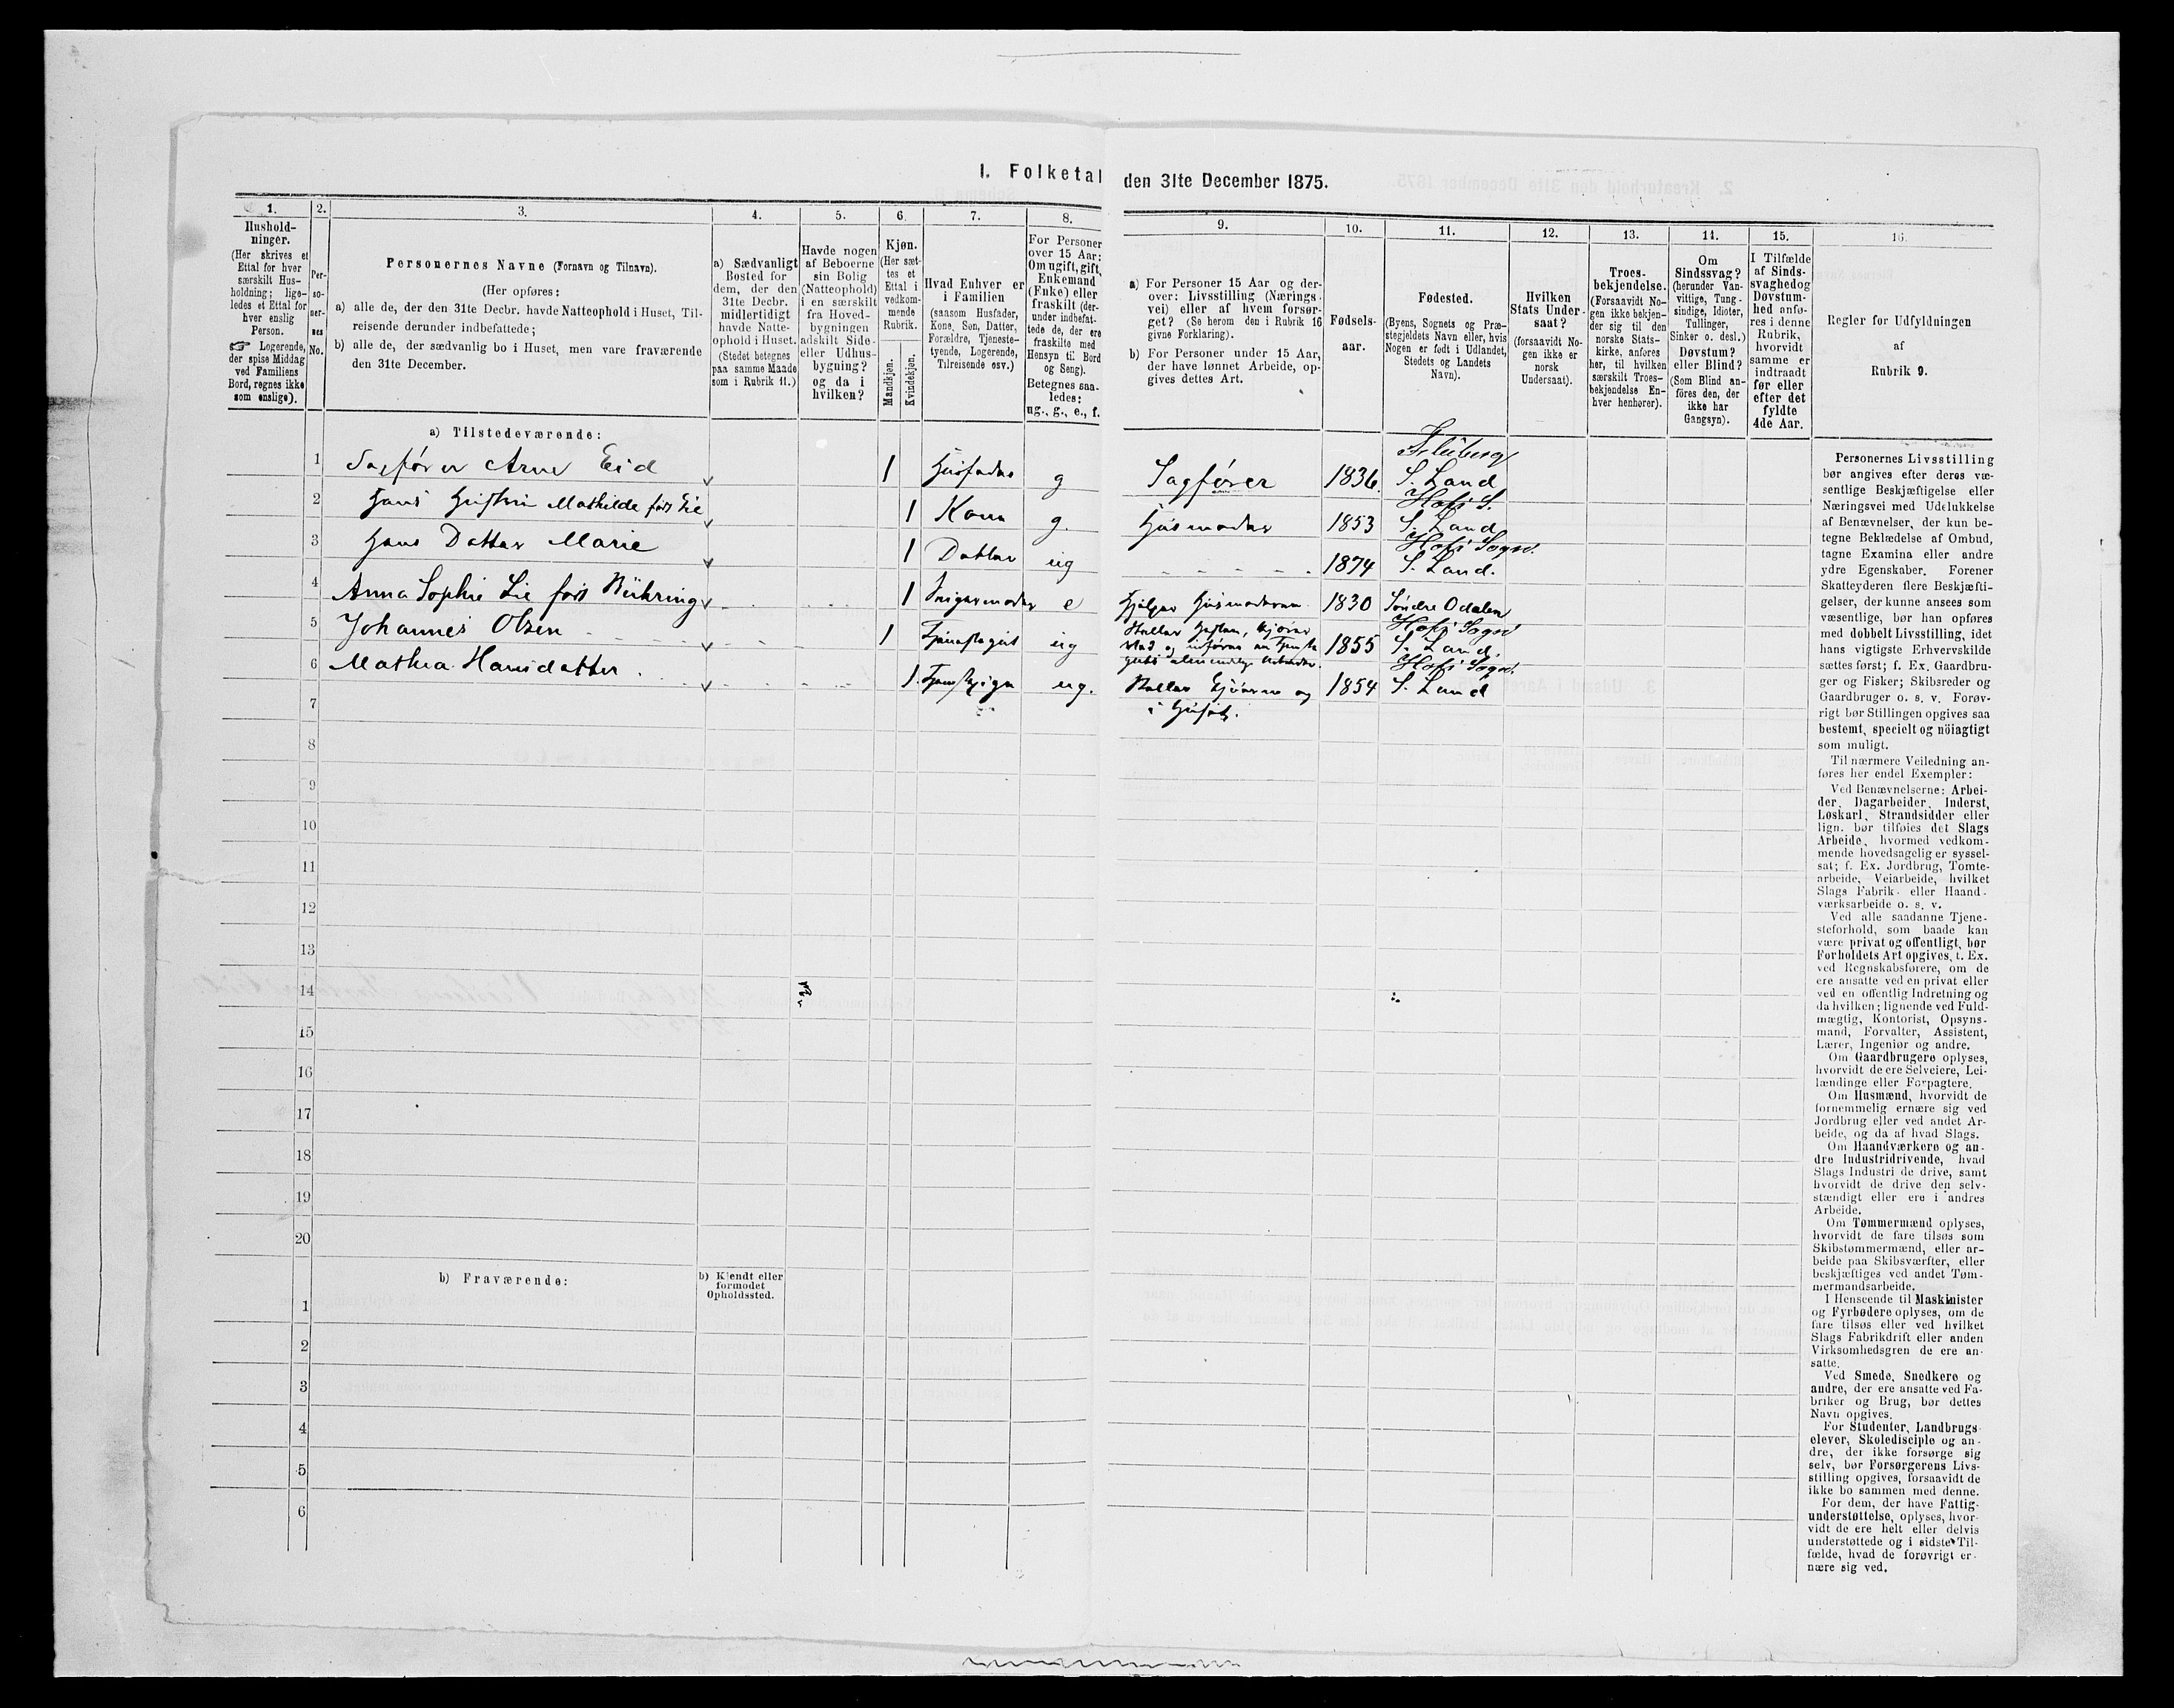 I. Folketal den 31te December 1875.
1.
2.
3.
4.
5.
6.
7.
8.
9.
10.
11.
12.
13.
14.
15.
16.
Hushold-
ninger.
(Her skrives et
Ettal for hver
særskilt Hus-
holdning; lige-
ledes et Ettal for
hver enslig
Person.
☞ Logerende,
der spise Middag
ved Familiens
Bord, regnes ikke
som enslige).
Per-
so-
ner-
nes
No.
Personernes Navne (Fornavn og Tilnavn).
(Her opføres:
a) alle de, der den 31te Decbr. havde Natteophold i Huset, Til-
reisende derunder indbefattede;
b) alle de, der sædvanlig bo i Huset, men vare fraværende
den 31te December.
a) Sædvanligt
Bosted for
dem, der den
31te Decbr.
midlertidigt
havde Natte-
ophold i Huset.
(Stedet betegnes
paa samme Maade
som i Rubrik 11.)
Havde nogen
af Beboerne
sin Bolig
(Natteophold)
i en særskilt
fra Hoved-
bygningen
adskilt Side-
eller Udhus-
bygning?
og da i
hvilken?
Kjøn.
(Her sæt-
tes et
Ettal i
vedkom-
mende
Rubrik.
Mandkjøn.
Kvindekjøn.
Hvad Enhver er
i Familien
(saasom Husfader,
Kone, Søn, Datter,
Forældre, Tjeneste-
tyende, Logerende,
Tilreisende osv.)
For Personer
over 15 Aar:
Om ugift, gift,
Enkemand
(Enke) eller
fraskilt (der-
under indbefat-
tede de, der ere
fraskilte med
Hensyn til Bord
og Seng).
Betegnes saa-
ledes:
ug., g., e., f.
a) For Personer 15 Aar og der-
over: Livsstilling (Nærings-
vei) eller af hvem forsør-
get? (Se herom den i Rubrik 16
givne Forklaring).
b) For Personer under 15 Aar,
der have lønnet Arbeide, op-
gives dettes Art.
Fødsels-
aar.
Fødested.
(Byens, Sognets og Præ-
stegjeldets Navn eller, hvis
Nogen er født i Udlandet,
Stedets og Landets
Navn).
Hvilken
Stats Under-
saat?
(forsaavidt No-
gen ikke er
norsk
Undersaat).
Troes-
bekjendelse.
(Forsaavidt No-
gen ikke bekjen-
der sig til den
norske Stats-
kirke, anføres
her, til hvilken
særskilt Troes-
bekjendelse En-
hver henhører).
Om
Sindssvag?
(herunder Van-
vittige, Tung-
sindige, Idioter,
Tullinger,
Sinker o. desl.)
Døvstum?
eller Blind?
(Som Blind an-
föres den, der
ikke har
Gangsyn).
I Tilfælde
af Sinds-
svaghed og
Døvstum-
hed anfø-
res i denne
Rubrik,
hvorvidt
samme er
indtraadt
før eller
efter det
fyldte
4de Aar.
Regler for Udfyldningen
af
Rubrik 9.
a) Tilstedeværende:
1 Sagfører Arne Eid 1 Husfader g Sagfører 1836. Fluberg S. Land
2 Hans Hustru Mathilde født Lie 1 Kone g. Husmoder 1853 Hofs S. S. Land
3 Hans Datter Marie 1 Datter ug 1874 Hofs Sogn. S. Land.
4 Anna Sophie Lie født Bühring 1 Svigermoder e Hjelper Husmoderen 1830 Søndre Odalen
5 Johannes Olsen 1 Tjenestegut ug Steller Hesten, kjører 1855 Hofs Sogn S. Land.
6 Mathea Hansdatter 1. Tjenestepige ug. Steller Kjørene og 1854 Hofs Sogn. S. Land
7
8
9
10
11
12
13
14
15
16
17
18
19
20
b) Fraværende:
b) Kjendt eller
formodet
Opholdssted.
1
2
3
4
5
6
Personernes Livsstilling
bør angives efter deres væ-
sentlige Beskjæftigelse eller
Næringsvei med Udelukkelse
af Benævnelser, der kun be-
tegne Beklædelse af Ombud,
tagne Examina eller andre
ydre Egenskaber. Forener
Skatteyderen flere Beskjæfti-
gelser, der kunne ansees som
væsentlige, bør han opføres
med dobbelt Livsstilling, idet
hans vigtigste Erhvervskilde
sættes først; f. Ex. Gaardbru-
ger og Fisker; Skibsreder og
Gaardbruger o. s. v. Forøv-
rigt bør Stillingen opgives saa
bestemt, specielt og nöiagtigt
som muligt.
Til nærmere Veiledning an-
føres her endel Exempler:
Ved Benævnelserne: Arbei-
der, Dagarbeider, Inderst,
Løskarl, Strandsidder eller
lign. bør tilføies det Slags
Arbeide, hvormed vedkom-
mende hovedsagelig er syssel-
sat; f. Ex. Jordbrug, Tomte-
arbeide, Veiarbeide, hvilket
Slags Fabrik- eller Haand-
værksarbeide o. s. v.
Ved alle saadanne Tjene-
steforhold, som baade kan
være privat og offentligt, bør
Forholdets Art opgives, t. Ex.
ved Regnskabsførere, om de
ere ansatte ved en privat eller
ved en offentlig Indretning og
da hvilken; lignende ved Fuld-
mægtig, Kontorist, Opsyns-
mand, Forvalter, Assistent,
Lærer, Ingeniør og andre.
Om Gaardbrugere oplyses,
hvorvidt de ere Selveiere, Lei-
lændinge eller Forpagtere.
Om Husmænd, hvorvidt de
fornemmelig ernære sig ved
Jordbrug eller ved andet Ar-
beide, og da af hvad Slags.
Om Haandværkere og an-
dre Industridrivende, hvad
Slags Industri de drive, samt
hvorvidt de drive den selv-
stændigt eller ere i andres
Arbeide.
Om Tømmermænd oplyses,
hvorvidt de fare tilsøs som
Skibstømmermænd, eller ar-
beide paa Skibsværfter, eller
beskjæftiges ved andet Tøm-
mermandsarbeide.
I Henseende til Maskinister
og Fyrbødere oplyses, om de
fare tilsøs eller ved hvilket
Slags Fabrikdrift eller anden
Virksomhedsgren de ere an-
satte.
Ved Smede, Snedkere og
andre, der ere ansatte ved Fa-
briker og Brug, bør dettes
Navn opgives.
For Studenter, Landbrugs-
elever, Skoledisciple og an-
dre, der ikke forsørge sig
selv, bør Forsørgerens Livs-
stilling opgives, forsaavidt de
ikke bo sammen med denne.
For dem, der have Fattig-
understøttelse, oplyses, hvor-
vidt de ere helt eller delvis
understøttede og i sidste Til-
fælde, hvad de forøvrigt er-
nære sig ved.